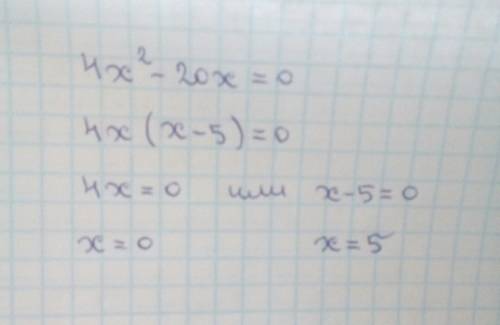 4x² - 20x = 0
4x (x - 5) = 0
4x = 0 или x - 5 = 0
x = 0 x = 5